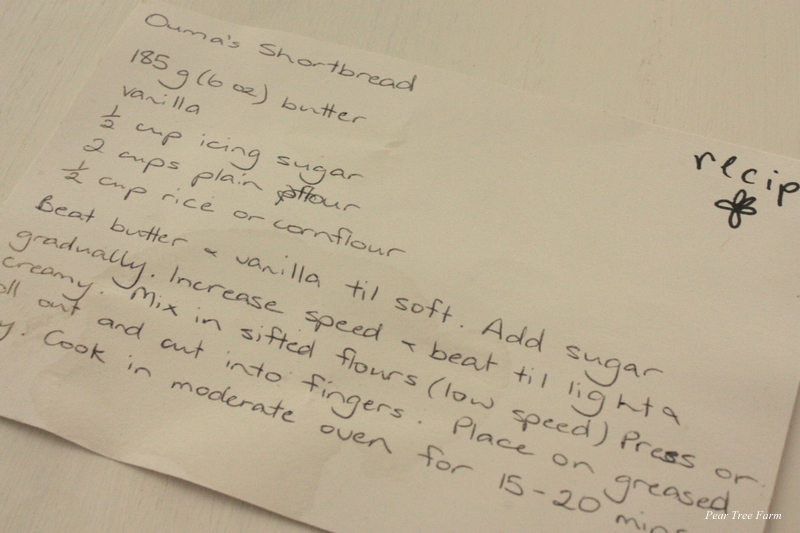 Ouma's Shortbread
185 g (6 oz) butter
vanilla
1/2 cup icing sugar
2 cups plain flour
1/2 cup rice or cornflour
recip
Beat butter & vanilla til soft. Add sugar
gradually. Increase speed & beat til light &
creamy. Mix in sifted flours (low speed) Press or
oll out and cut into fingers. Place on greased
y. Cook in moderate oven for 15-20 mins
Pear Tree Farm